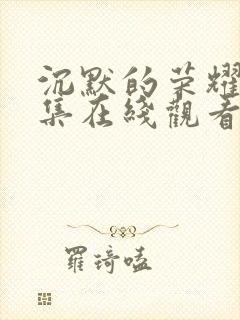 沉默的荣耀
集在綫觀看
羅琦嗑